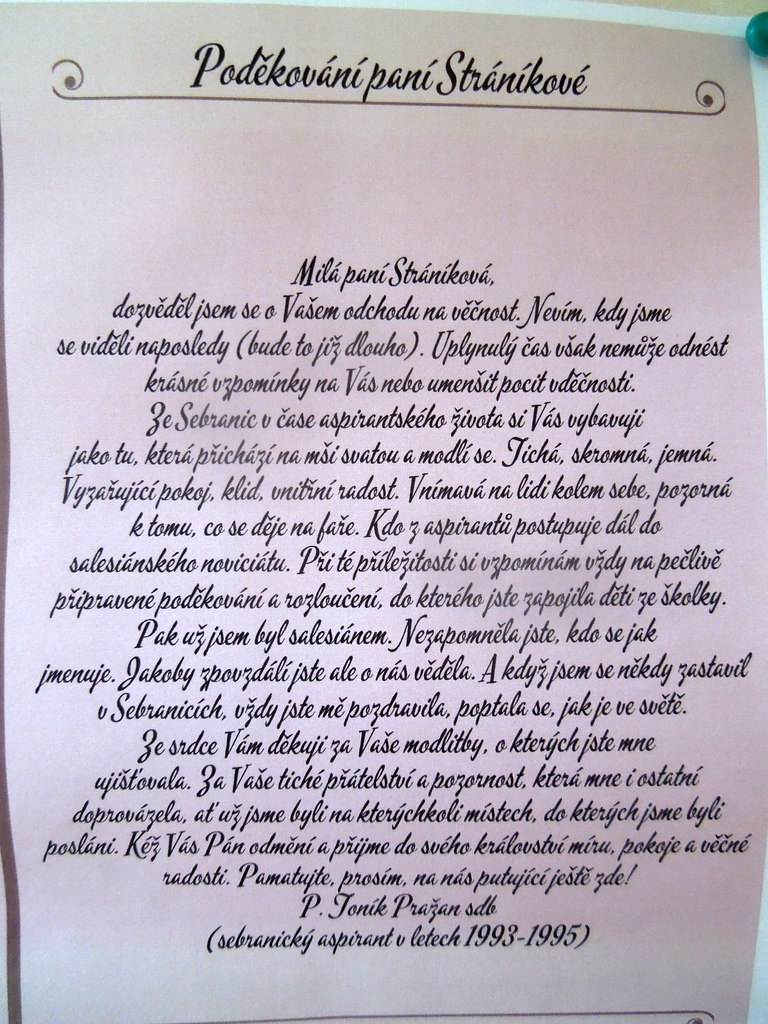 Poděkování paní Stráníkové
Milá paní Stráníková,
dozvěděl jsem se o Vašem odchodu na věčnost. Nevím, kdy jsme
se viděli naposledy (bude to již dlouho). Uplynulý čas však nemůže odnést
krásné vzpomínky na Vás nebo umenšit pocit vděčnosti.
Ze Sebranic v čase aspirantského života si Vás vybavuji
jako tu, která přichází na mši svatou a modlí se. Tichá, skromná, jemná.
Vyzařující pokoj, klid, vnitřní radost. Vnímavá na lidi kolem sebe, pozorná
k tomu, co se děje na faře. Kdo z aspirantů postupuje dál do
salesiánského noviciátu. Při té příležitosti si vzpomínám vždy na pečlivě
připravené poděkování a rozloučení, do kterého jste zapojila děti ze školky.
Pak už jsem byl salesiánem. Nezapomněla jste, kdo se jak
jmenuje. Jakoby zpovzdálí jste ale o nás věděla. A když jsem se někdy zastavil
v Sebranicích, vždy jste mě pozdravila, poptala se, jak je ve světě.
Ze srdce Vám děkuji za Vaše modlitby, o kterých jste mne
ujišťovala. Za Vaše tiché přátelství a pozornost, která mne i ostatní
doprovázela, ať už jsme byli na kterýchkoli místech, do kterých jsme byli
posláni. Kéž Vás Pán odmění a přijme do svého království míru, pokoje a věčné
radosti. Pamatujte, prosím, na nás putující ještě zde!
P. Toník Pražan sdb
(sebranický aspirant v letech 1993-1995)